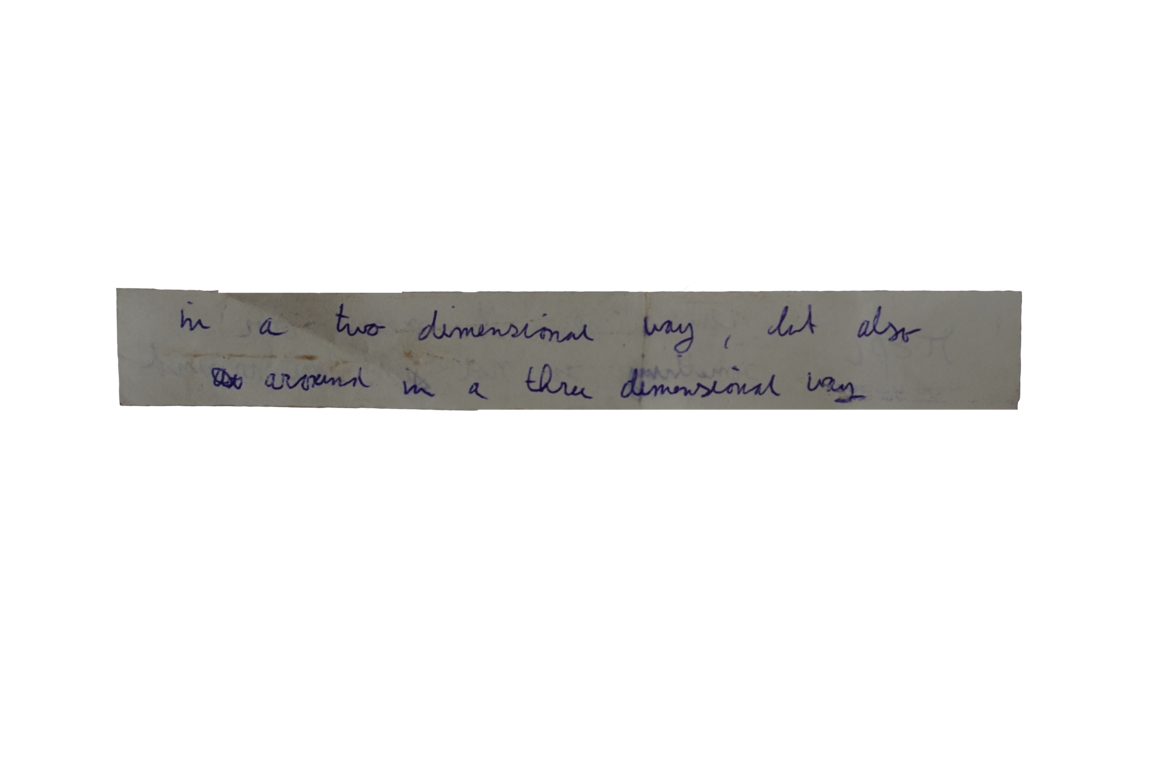 in a two dimensional way, but also
around in a three dimensional way